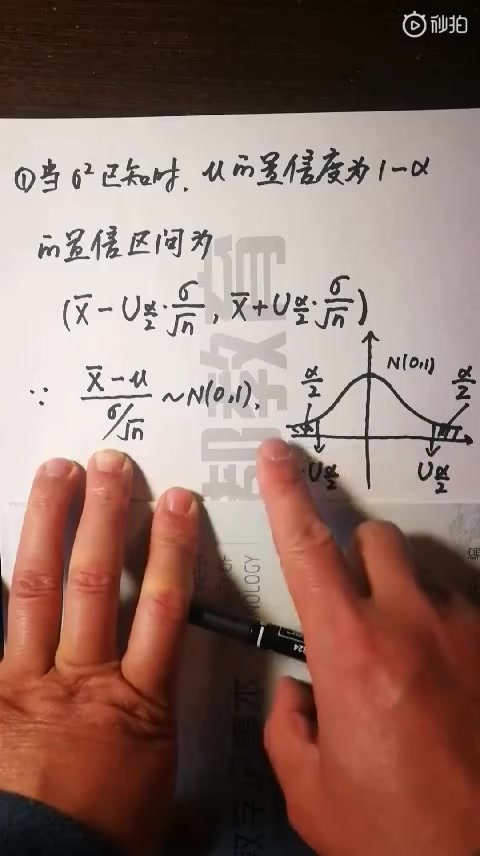 秒拍
①当σ²已知时，μ的置信度为1-α
的置信区间为
(X̄-Uα/2·σ/√n, X̄+Uα/2·σ/√n)
∵ (X̄-μ)/(σ/√n) ~N(0,1),
N(0,1)
α/2
α/2
-Uα/2
Uα/2
都教育
OF
NOLOGY